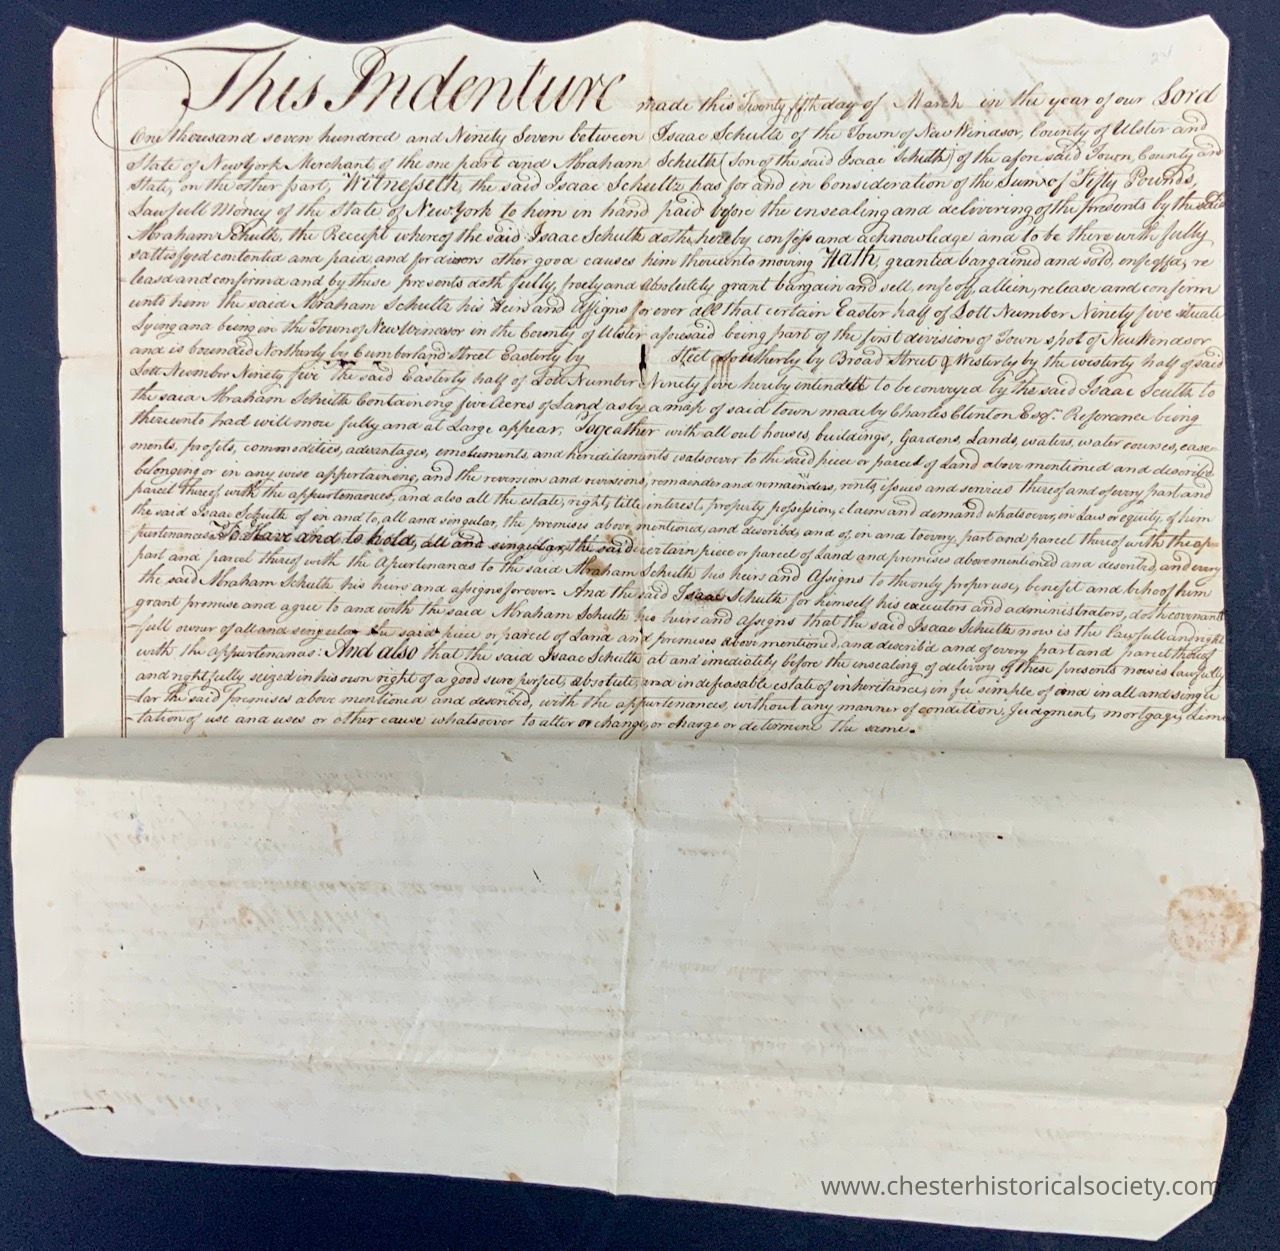 24
This Indenture made this Twenty fifth day of March in the year of our Lord
One thousand seven hundred and Ninety Seven between Isaac Schultz of the Town of New Windsor, County of Ulster and
State of New York Merchant, of the one part and Abraham Schultz (Son of the said Isaac Schultz) of the afore said Town, County and
State, on the other part, Witnesseth, the said Isaac Schultz has for and in Consideration of the Sum of Fifty Pounds,
Lawfull Money of the State of New York to him in hand paid before the ensealing and delivering of the presents by the said
Abraham Schultz, the Receipt whereof the said Isaac Schultz doth hereby confess and acknowledge and to be there with fully
sattisfyed contented and paid and for divers other good causes him thereunto moving Hath, granted bargained and sold, enfeoffed, re
leased and confirmed and by these presents doth fully, freely and absolutely grant bargain and sell, enfeoff, alien, release and confirm
unto him the said Abraham Schultz his Heirs and Assigns for ever all that certain Easter half of Lott Number Ninety five situate
Lying and being in the Town of New Windsor in the County of Ulster aforesaid being part of the first division of Town spot of New Windsor
and is bounded Northerly by Cumberland Street Easterly by Street Southerly by Broad Street & Westerly by the westerly half of said
Lott Number Ninety five the said Easterly half of Lott Number Ninety five hereby intended to be conveyed by the said Isaac Scultz to
the said Abraham Schultz Containing five Acres of Land as by a map of said town made by Charles Clinton Esqr. Referance being
thereunto had will more fully and at Large appear, Togeather with all out houses, buildings, Gardens, Lands, waters, water courses, ease-
ments, profits, commodities, advantages, emoluments, and hereditaments watsoever to the said piece or parcel of Land above mentioned and described
belonging or in any wise appertaining, and the reversion and reversions, remainder and remainders, rents, issues and services thereof and of every part and
parcel thereof, with the appurtenances, and also all the estate, right, title interest, property possession, claim and demand whatsoever, in Law or equity, of him
the said Isaac Schultz of in and to, all and singular, the premises above mentioned, and described, and of, in and to every, part and parcel thereof with the ap-
purtenances To Have and to hold, all and singular, the said certain piece or parcel of Land and premises above mentioned and described, and every
part and parcel thereof with the Apurtenances to the said Abraham Schultz his heirs and Assigns to the only proper use, benefit and behoof him
the said Abraham Schultz his heirs and assigns forever. And the said Isaac Schultz for himself his executors and administrators, doth covenant
grant promise and agree to and with the said Abraham Schultz his heirs and assigns that the said Isaac Schultz now is the lawfull and right
full owner of all and singular the said piece or parcel of Land and premises above mentioned, and described and of every part and parcel thereof
with the appurtenances: And also that the said Isaac Schultz at and imediately before the ensealing of delivery of these presents now is lawfully
and rightfully seized in his own right of a good sure perfect, absolute, and indefeasable estate of inheritance, in fee simple of and in all and singu
lar the said premises above mentioned and described, with the appurtenances, without any manner of condition, Judgment, mortgage, Limi
tation of use and uses or other cause whatsoever to alter or change, or charge or determine the same.
www.chesterhistoricalsociety.com